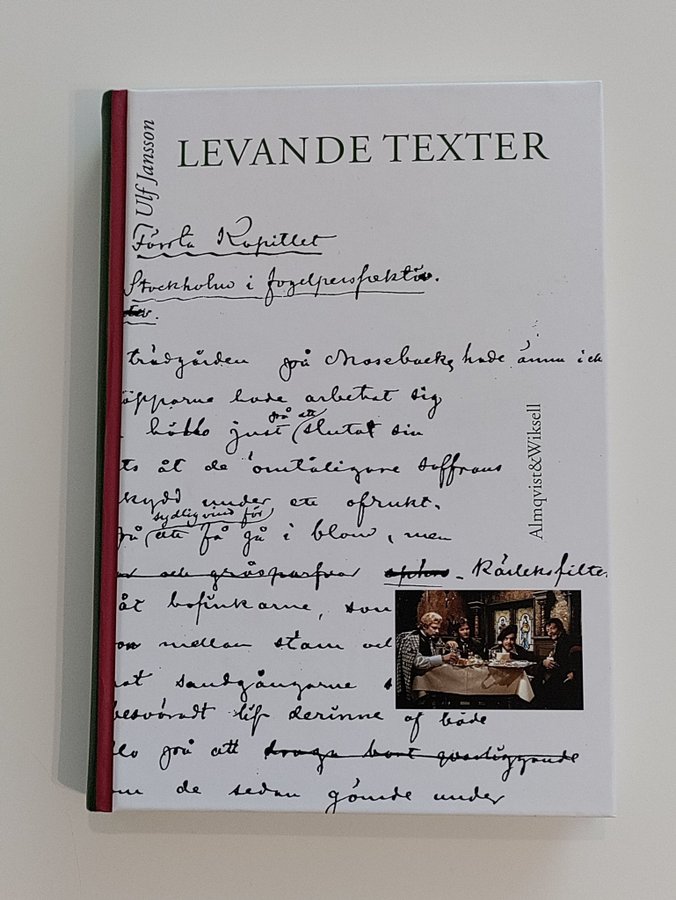 Ulf Jansson
LEVANDE TEXTER
Första Kapitlet
Stockholm i fogelperspektiv.
trädgården på Mosebacke hade ännu ick
äpparne hade arbetat sig
höllo just på att slutat sin
ts åt de ömtåligare saffrans
skydd under ett ofrukt.
på sydlig vind för att få gå i blom, men
och gråsparfvar Kärleksfilter
åt bofinkarne, som
mellan stam och
sandgångarne s
besväradt lif derinne af både
llo på att draga bort qvarliggande
om de sedan gömde under
Almqvist&Wiksell